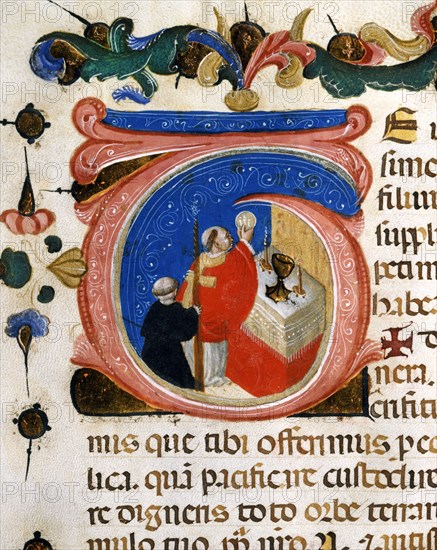 simo
filium
suppli
petim
habe
nera.
crifiti
mis que tibi offerimus p ec
lica. quã pacificare custodire
re digneris toto orbe terrar
mulo tuo